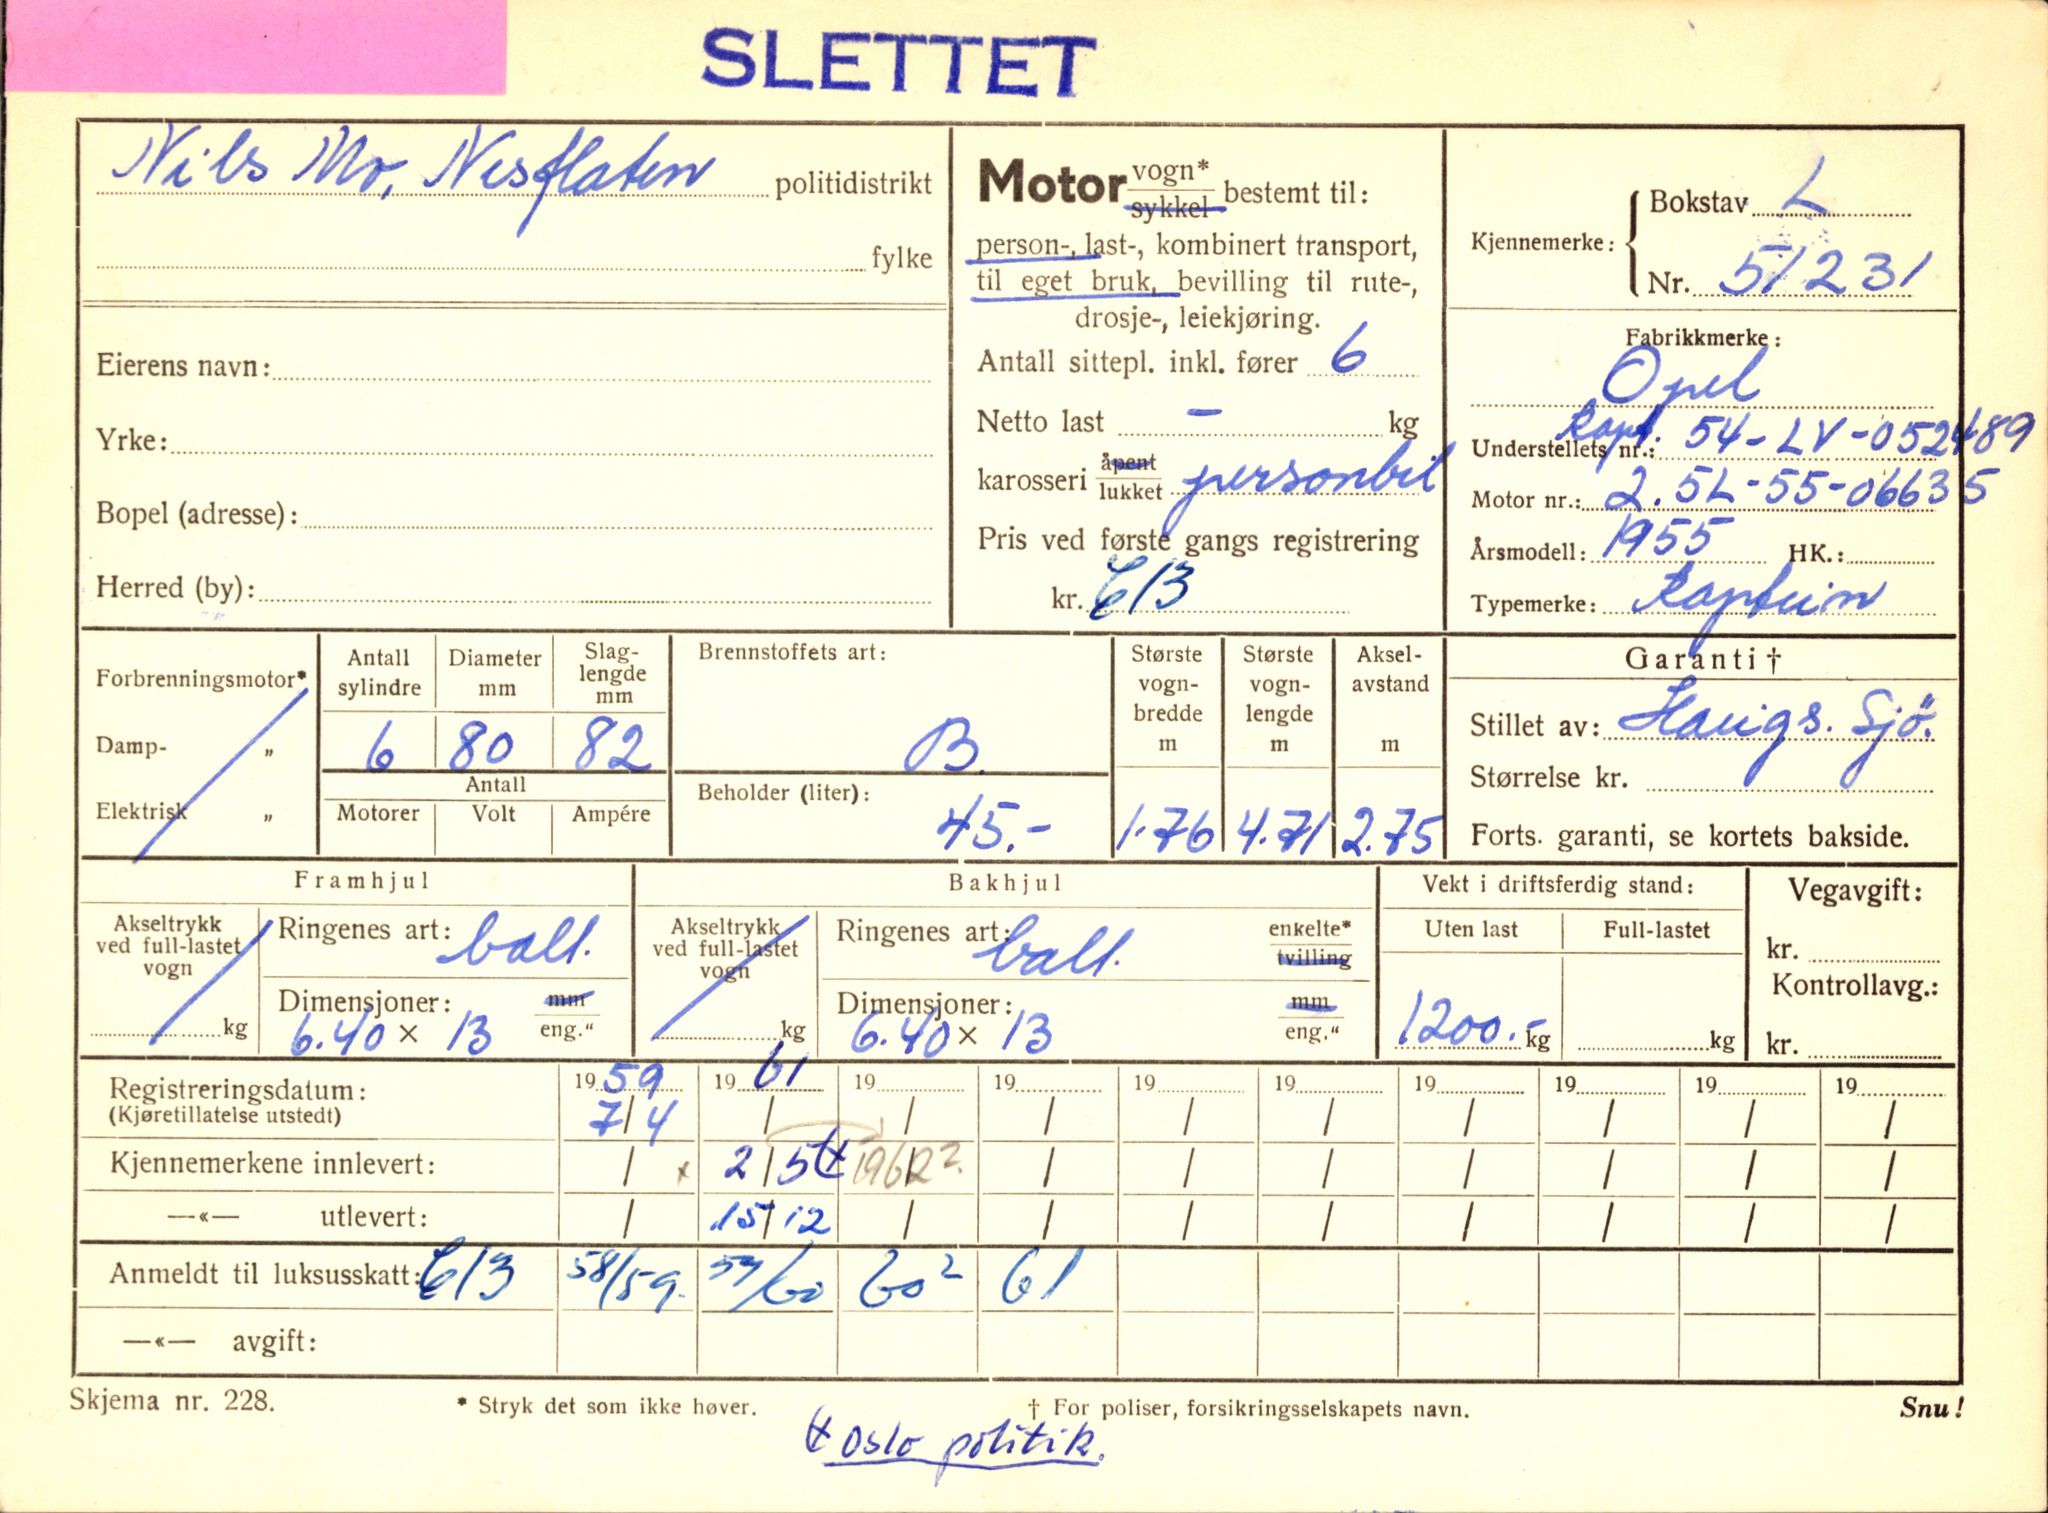 SLETTET
Nils Mo, Nesflaten politidistrikt
fylke
Eierens navn:
Yrke:
Bopel (adresse):
Herred (by):
Motor vogn* sykkel bestemt til:
person-, last-, kombinert transport,
til eget bruk, bevilling til rute-,
drosje-, leiekjøring.
Antall sittepl. inkl. fører 6
Netto last – kg
karosseri åpent lukket personbil
Pris ved første gangs registrering
kr. 613
Kjennemerke: Bokstav L
Nr. 51231
Fabrikkmerke:
Opel
Kapt.
Understellets nr.: 54-LV-052489
Motor nr.: 2.5L-55-06635
Årsmodell: 1955 HK.:
Typemerke: Kaptein
Forbrenningsmotor*
Damp- „
Elektrisk „
Antall sylindre Diameter mm Slag-lengde mm
6 80 82
Antall
Motorer Volt Ampére
Brennstoffets art:
B.
Beholder (liter):
45.-
Største vogn-bredde m
1.76
Største vogn-lengde m
4.71
Aksel-avstand m
2.75
Garanti †
Stillet av: Haugs. Sjö.
Størrelse kr.
Forts. garanti, se kortets bakside.
Framhjul
Akseltrykk
ved full-lastet
vogn
kg
Ringenes art: ball.
Dimensjoner: mm
6.40 × 13 eng."
Bakhjul
Akseltrykk
ved full-lastet
vogn
kg
Ringenes art: ball. enkelte*
tvilling
Dimensjoner: mm
6.40 × 13 eng."
Vekt i driftsferdig stand:
Uten last Full-lastet
1200.- kg kg
Vegavgift:
kr.
Kontrollavg.:
kr.
Registreringsdatum: 1959 1961 19 19 19 19 19 19 19 19
(Kjøretillatelse utstedt) 7/4 / / / / / / / / /
Kjennemerkene innlevert: / x 2/5 x 1962? / / / / / / /
—«— utlevert: / 15/12 / / / / / / / /
Anmeldt til luksusskatt: 613 58/59. 59/60 60² 61
—«— avgift:
Skjema nr. 228. * Stryk det som ikke høver. † For poliser, forsikringsselskapets navn. Snu!
x Oslo politik.